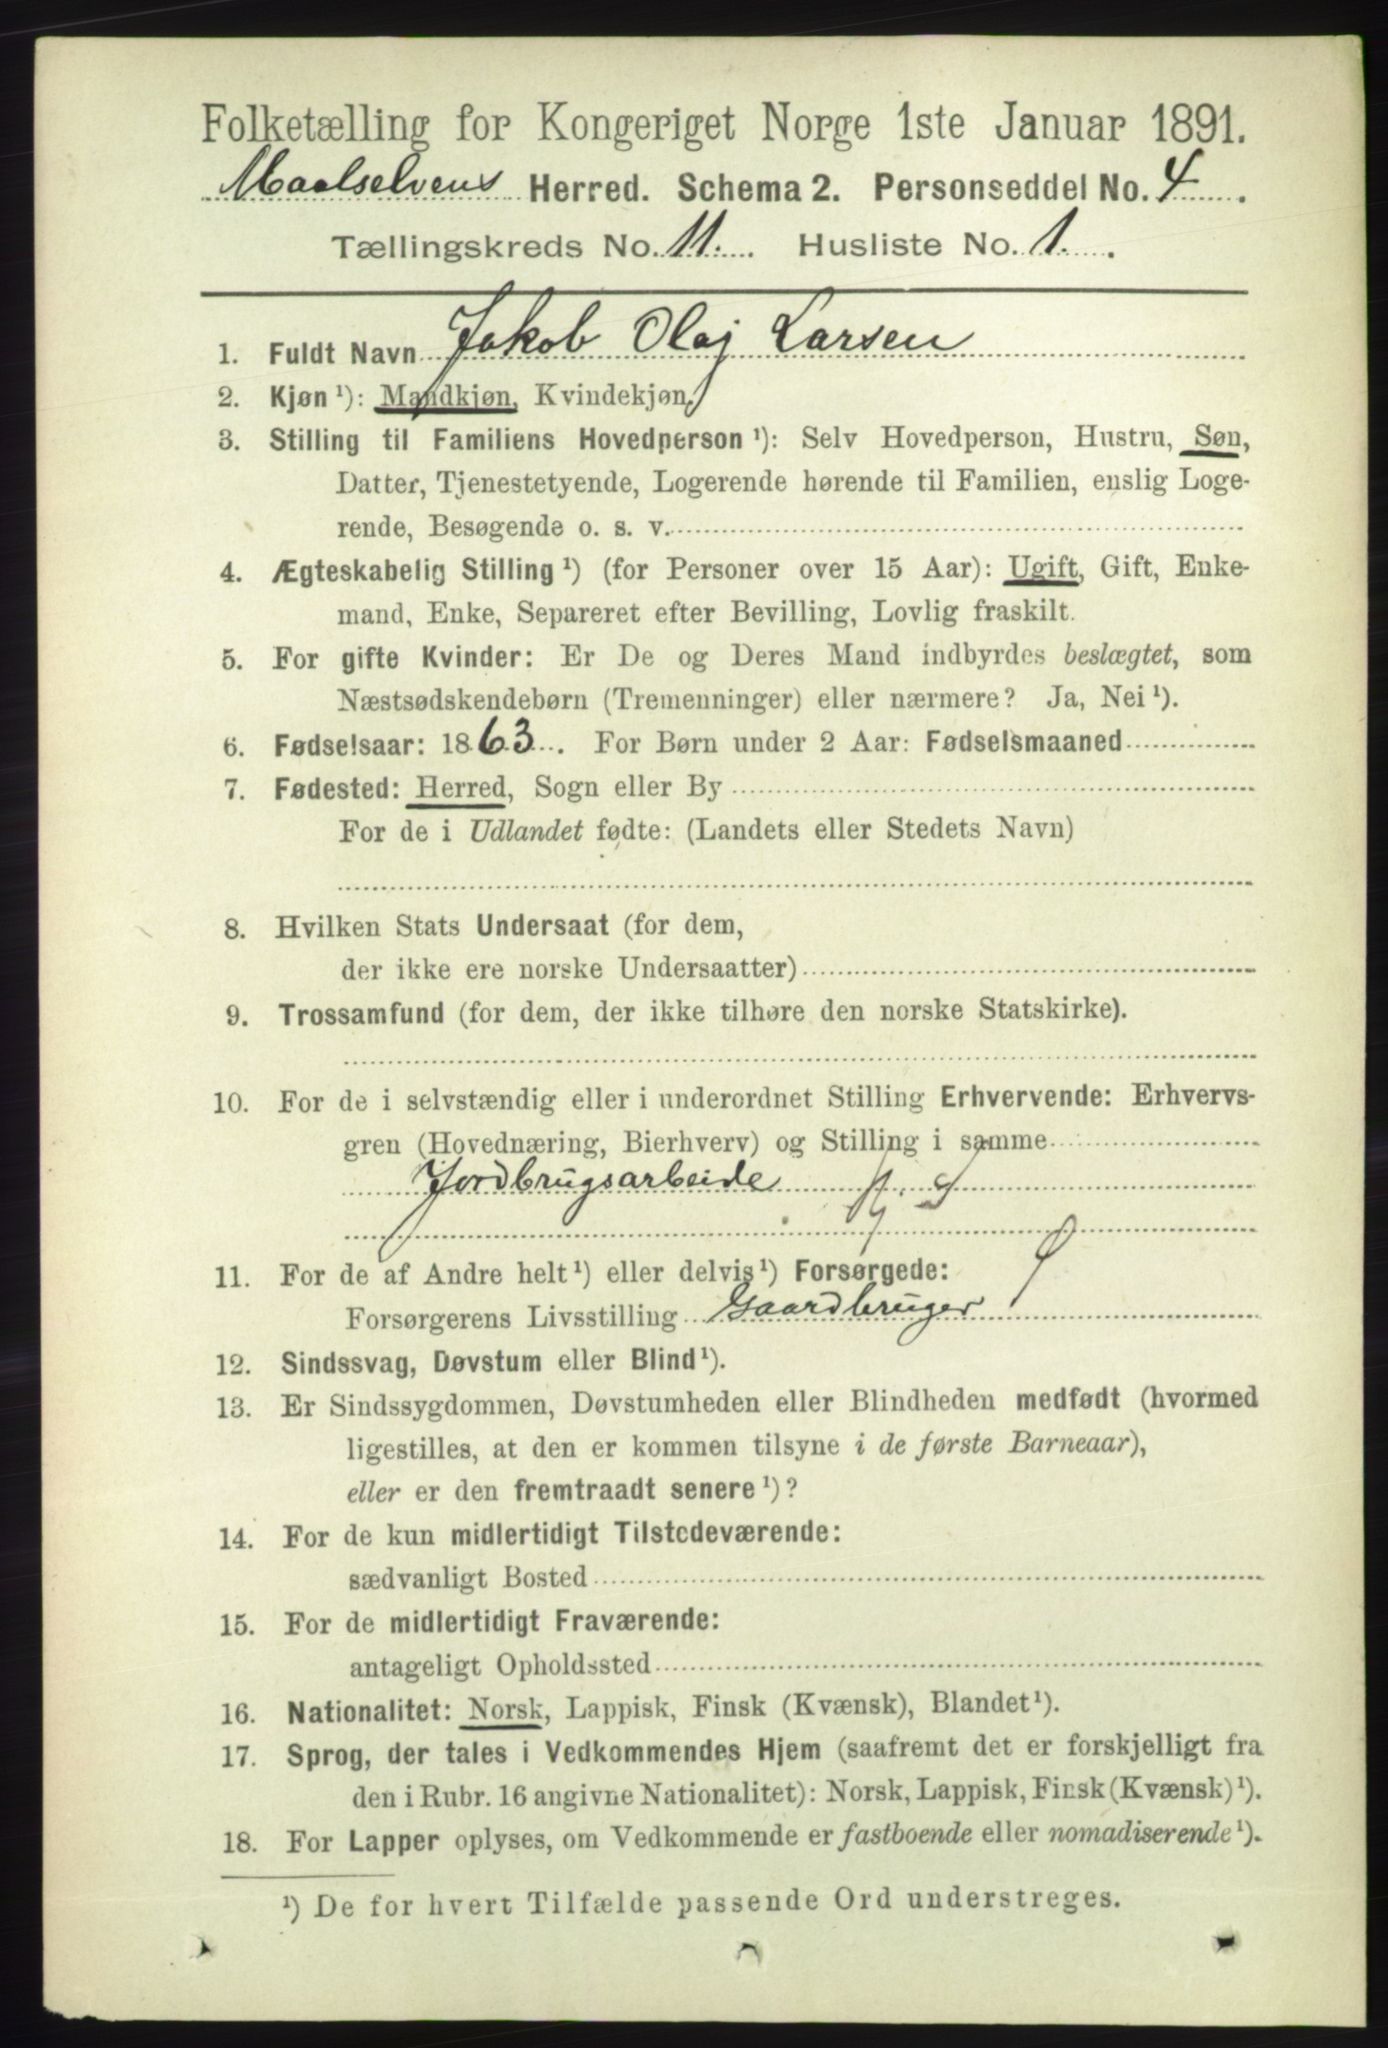 Folketælling for Kongeriget Norge 1ste Januar 1891.
Maalselvens Herred. Schema 2. Personseddel No. 4.
Tællingskreds No. 11. Husliste No. 1.
1. Fuldt Navn Jakob Olaj Larsen
2. Kjøn ¹): Mandkjøn, Kvindekjøn.
3. Stilling til Familiens Hovedperson ¹): Selv Hovedperson, Hustru, Søn,
Datter, Tjenestetyende, Logerende hørende til Familien, enslig Loge-
rende, Besøgende o. s. v.
4. Ægteskabelig Stilling ¹) (for Personer over 15 Aar): Ugift, Gift, Enke-
mand, Enke, Separeret efter Bevilling, Lovlig fraskilt.
5. For gifte Kvinder: Er De og Deres Mand indbyrdes beslægtet, som
Næstsødskendebørn (Tremenninger) eller nærmere? Ja, Nei ¹).
6. Fødselsaar: 1863. For Børn under 2 Aar: Fødselsmaaned
7. Fødested: Herred, Sogn eller By
For de i Udlandet fødte: (Landets eller Stedets Navn)
8. Hvilken Stats Undersaat (for dem,
der ikke ere norske Undersaatter)
9. Trossamfund (for dem, der ikke tilhøre den norske Statskirke).
10. For de i selvstændig eller i underordnet Stilling Erhvervende: Erhvervs-
gren (Hovednæring, Bierhverv) og Stilling i samme
Jordbrugsarbeide
11. For de af Andre helt ¹) eller delvis ¹) Forsørgede:
Forsørgerens Livsstilling Gaardbruger
12. Sindssvag, Døvstum eller Blind ¹).
13. Er Sindssygdommen, Døvstumheden eller Blindheden medfødt (hvormed
ligestilles, at den er kommen tilsyne i de første Barneaar),
eller er den fremtraadt senere ¹)?
14. For de kun midlertidigt Tilstedeværende:
sædvanligt Bosted
15. For de midlertidigt Fraværende:
antageligt Opholdssted
16. Nationalitet: Norsk, Lappisk, Finsk (Kvænsk), Blandet ¹).
17. Sprog, der tales i Vedkommendes Hjem (saafremt det er forskjelligt fra
den i Rubr. 16 angivne Nationalitet): Norsk, Lappisk, Finsk (Kvænsk) ¹).
18. For Lapper oplyses, om Vedkommende er fastboende eller nomadiserende ¹).
¹) De for hvert Tilfælde passende Ord understreges.